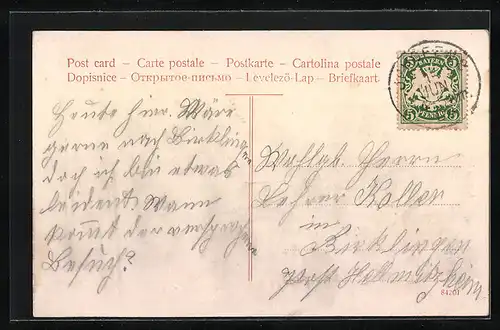 Post card – Carte postale – Postkarte – Cartolina postale
Dopisnice – Открытое письмо – Levelező-Lap – Briefkaart.
BAYERN
5 5
PFENNIG
JUN
Heute hier. Wäre
gerne nach Birklingen
doch ich bin etwas
leidend. Wann
kommt der versprochene
Besuch?
Wohlgb. Herrn
Lehrer Koller
in
Birklingen
Post Hellmitzheim
84201